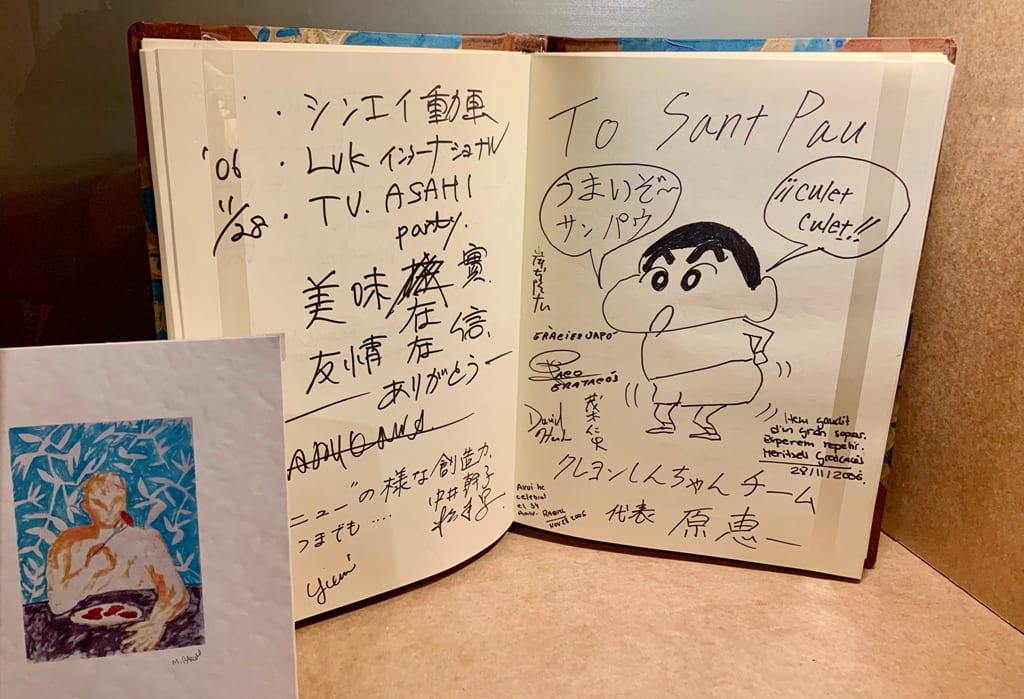 ・シンエイ動画
'06 ・LUK インターナショナル
11/28 ・TV. ASAHI
party.
美味 實
在
友情 在 信
ありがとうー
ニュー"の様な創造力
つまでも ....
中井 幹子
Yumi
M.
To Sant Pau
うまいぞ〜
サン パウ
¡¡Culet
Culet!!
GRÀCIES JAPÓ
David
茂木仁史
Hem gaudit
d'un gran sopar.
Esperem repetir.
Meritxell
28/11/2006.
クレヨンしんちゃん チーム
代表 原 恵一
Avui he
celebrat
el 34
Aniv.
Nov 28 2006